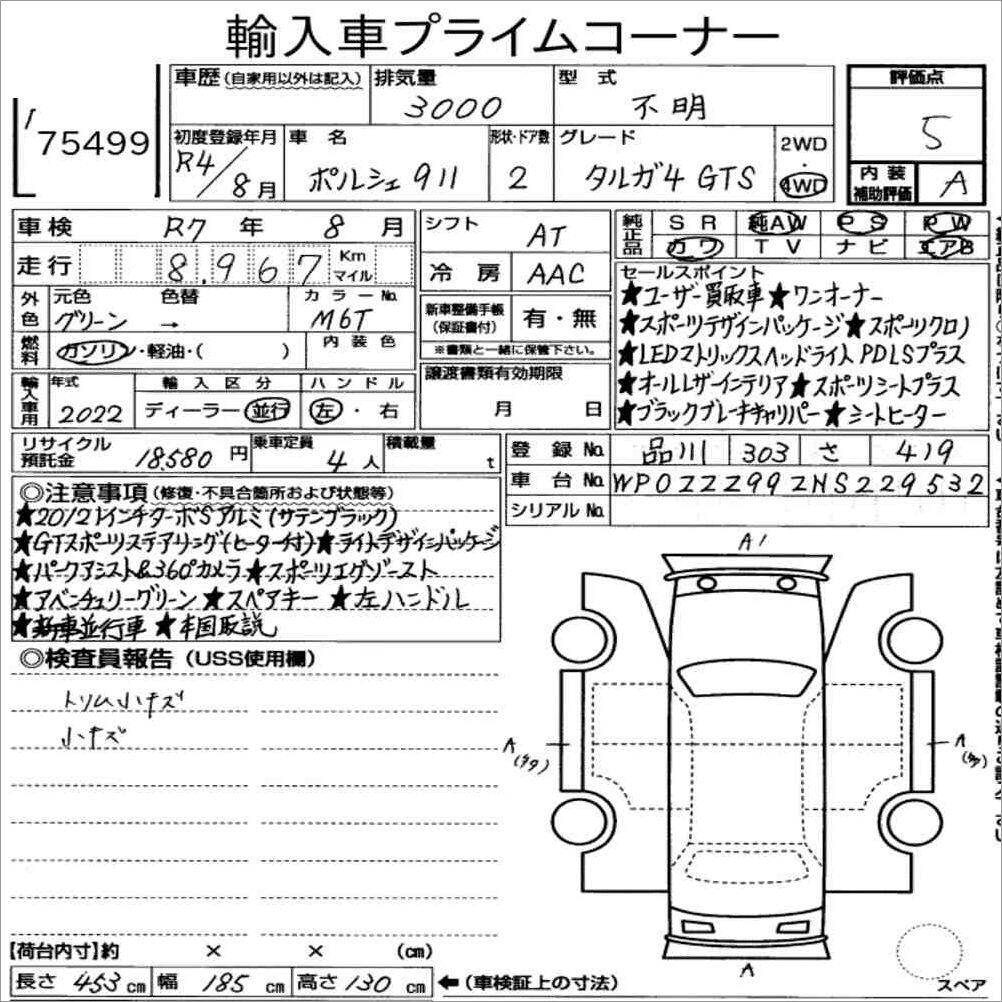 輸入車プライムコーナー
75499
車歴(自家用以外は記入)
排気量
3000
型式
不明
評価点
5
初度登録年月
R4/8月
車名
ポルシェ911
形状・ドア数
2
グレード
タルガ4 GTS
2WD
・
4WD
内装
補助評価
A
車検 R7年 8月
走行 8,967 Km マイル
外色
元色 色替
グリーン →
カラーNo.
M6T
燃料
ガソリン・軽油・( )
内装色
輸入車用
年式
2022
輸入区分
ディーラー・並行
ハンドル
左・右
シフト
AT
冷房
AAC
新車整備手帳
(保証書付)
有・無
※書類と一緒に保管下さい。
譲渡書類有効期限
月 日
純正品
SR 純AW PS PW
カワ TV ナビ エアB
セールスポイント
★ユーザー買取車★ワンオーナー
★スポーツデザインパッケージ★スポーツクロノ
★LEDマトリックスヘッドライトPDLSプラス
★オールレザーインテリア★スポーツシートプラス
★ブラックブレーキキャリパー★シートヒーター
リサイクル
預託金
18580円
乗車定員
4人
積載量
t
登録No. 品川 303 さ 419
車台No. WP0ZZZ99ZNS229532
シリアルNo.
◎注意事項(修復・不具合箇所および状態等)
★20/21インチターボSアルミ(サテンブラック)
★GTスポーツステアリング(ヒーター付)★ライトデザインパッケージ
★パークアシスト&360°カメラ★スポーツエグゾースト
★アベンチュリーグリーン★スペアキー★左ハンドル
★新車並行車★本国取説
◎検査員報告(USS使用欄)
トリム小キズ
小キズ
A1
A
A
A
スペア
【荷台内寸】約 × × (cm)
長さ 453 cm 幅 185 cm 高さ 130 cm ←(車検証上の寸法)